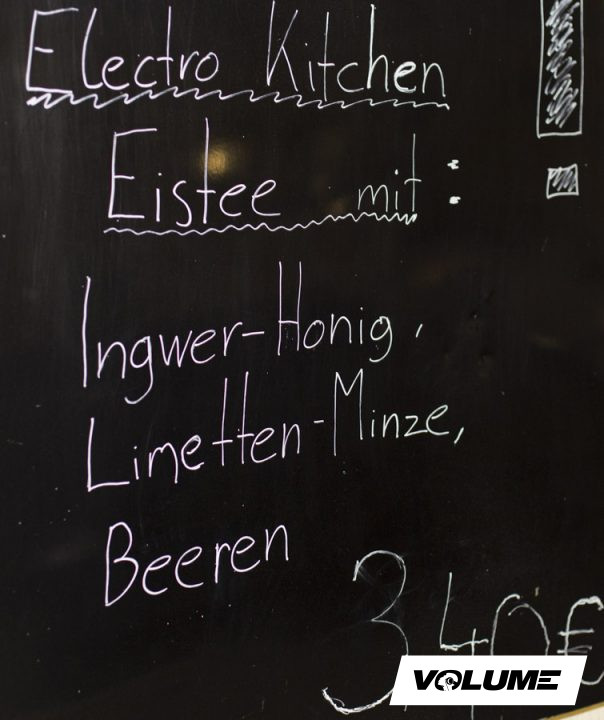 Electro Kitchen
Eistee mit:
Ingwer-Honig,
Limetten-Minze,
Beeren
3,40€
VOLUME